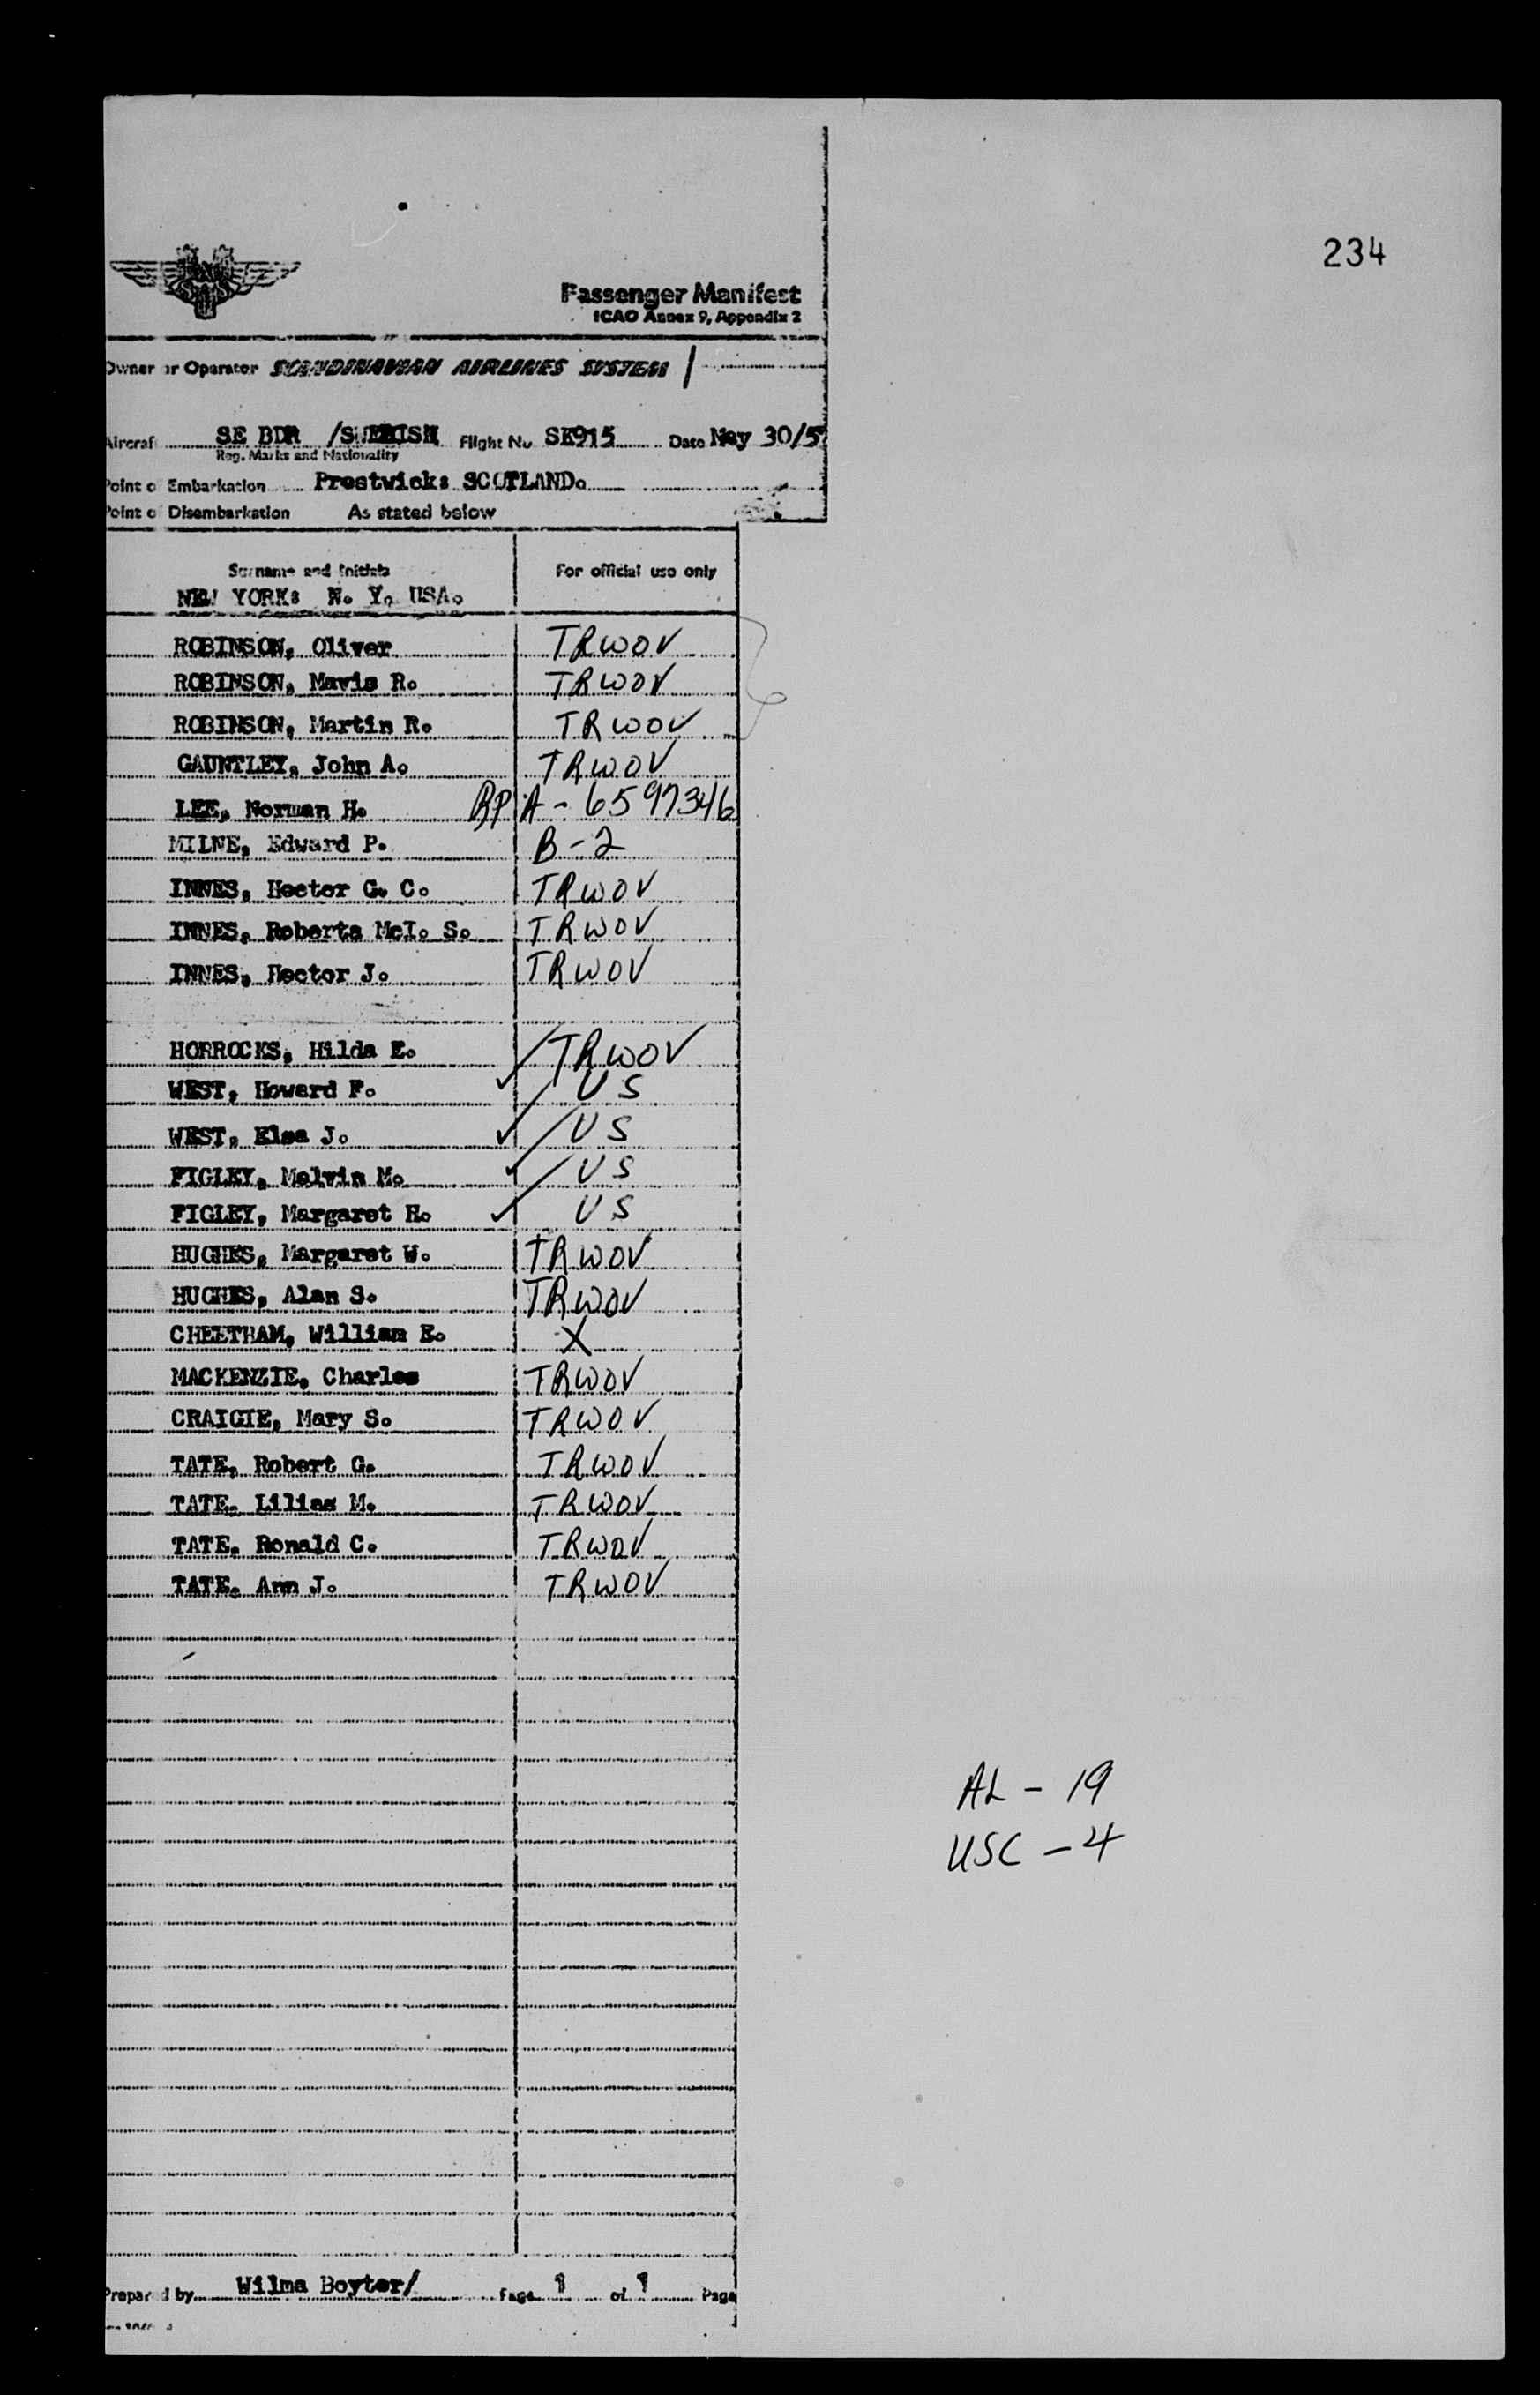 234
Passenger Manifest
ICAO Annex 9, Appendix 2
Owner or Operator SCANDINAVIAN AIRLINES SYSTEM /
Aircraf SE BDR /SWEDISH Flight No SK915 Date May 30/5
Reg. Marks and Nationality
Point o Embarkation Prestwick: SCOTLAND.
Point o Disembarkation As stated below
Surname and Initials For official use only
NEW YORK: N. Y. USA.
ROBINSON, Oliver TRWOV
ROBINSON, Mavis R. TRWOV
ROBINSON, Martin R. TRWOV
GAUNTLEY, John A. TRWOV
LEE, Norman H. RP A-6597346
MILNE, Edward P. B-2
INNES, Hector G. C. TRWOV
INNES, Roberta McI. S. TRWOV
INNES, Hector J. TRWOV
HORROCKS, Hilda E. TRWOV
WEST, Howard F. ✓ US
WEST, Elsa J. ✓ US
FIGLEY, Melvin M. ✓ US
FIGLEY, Margaret H. ✓ US
HUGHES, Margaret W. TRWOV
HUGHES, Alan S. TRWOV
CHEETHAM, William E. X
MACKENZIE, Charles TRWOV
CRAIGIE, Mary S. TRWOV
TATE, Robert G. TRWOV
TATE. Lilias M. TRWOV
TATE. Ronald C. TRWOV
TATE. Ann J. TRWOV
AL - 19
USC - 4
Prepared by Wilma Boyter/ Page 1 of 1 Page